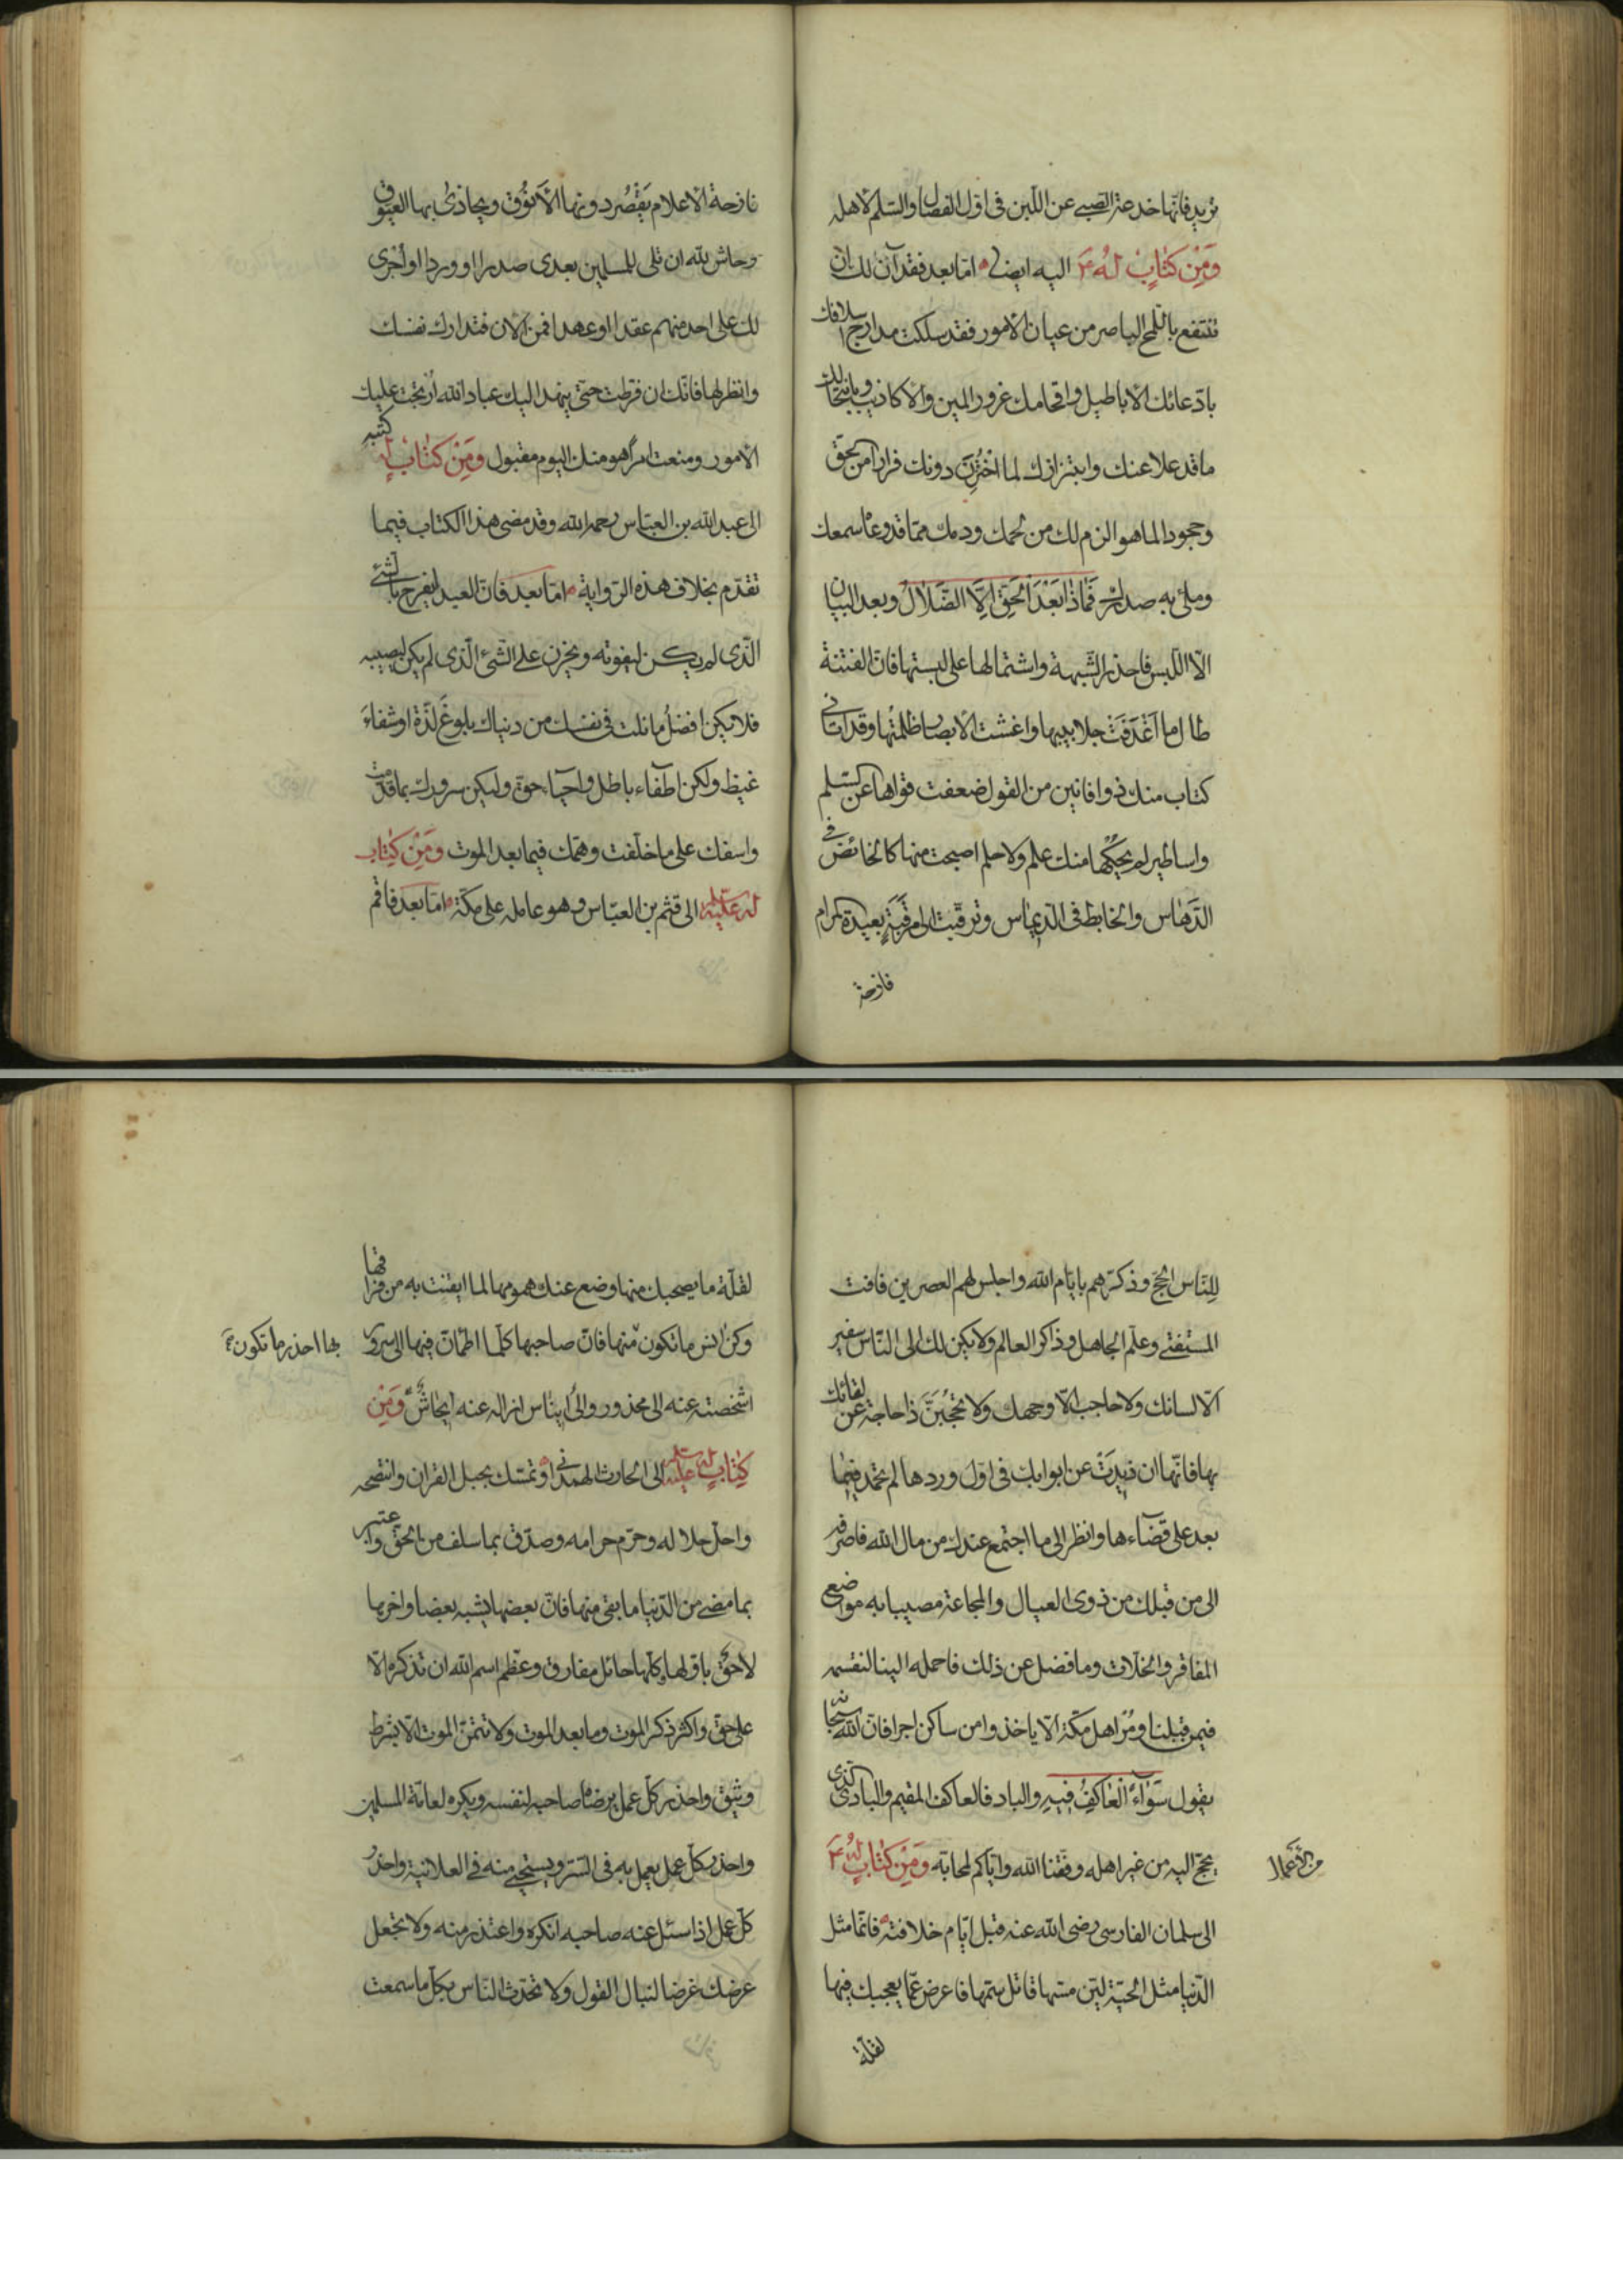 تريد فانّها خدعة الصبى عن اللبن فى اوّل الفصال والسّلم لاهله
وَمِنْ كتابٍ لهُ ع اليه ايضا امّا بعد فقد آن لك ان
تنتفع باللمح الباصر من عيان الامور فقد سلكت مدارج اسلافك
بادّعائك الاباطيل واقحامك غرور المين والاكاذيب وبانتحالك
ما قد علا عنك وابتزازك لما اخْتُزِنَ دونك فرارا من الحقّ
وجحودا لما هو الزم لك من لحمك ودمك ممّا قد وعاه سمعك
وملئ به صدرك فَمَاذَا بَعْدَ الْحَقِّ اِلَّا الضَّلَالُ وبعد البيان
الّا اللّبس فاحذر الشّبهة واشتمالها على لبستها فانّ الفتنة
طال ما اَغْدَفَتْ جلابيبها واغشت الابصار ظلمتُها وقد اتانى
كتاب منك ذو افانين من القول ضعفت قواها عن السّلم
واساطير لم يَحُكْها منك علم ولا حلم اصبحت منها كالخائض فى
الدَّهاس والخابط فى الدّيماس وترقّيت الى مَرقَبَةٍ بعيدة المرام
نازحة
نازحة الاعلام يَقْصُر دونها الاَنُوق ويحاذىُ بها العيّوق
وحاش لله ان تلى للمسلمين بعدى صدرا او وردا او اُجْرى
لك على احد منهم عقدا او عهدا فمن الان فتدارك نفسك
وانظر لها فانّك ان فرّطت حتى ينهد اليك عباد الله اُرْتجت عليك
الامور ومنعت امرًا هو منك اليوم مقبول وَمِنْ كتابٍ له كتبه
الى عبد الله بن العبّاس رحمه الله وقد مضى هذا الكتاب فيما
تقدّم بخلاف هذه الرّواية امّا بعد فانّ العبد ليفرح بالشّئ
الّذى لم يكن ليفوته ويحزن على الشّئ الّذى لم يكن ليصيبه
فلا يكن افضلُ ما نلت فى نفسك من دنياك بلوغَ لذّة او شفاءَ
غيظ ولكن اطفاء باطل واحياء حق وليكن سرورك بما قدّمت
واسفك على ما خلّفت وهمّك فيما بعد الموت وَمِنْ كتاب
له عليه السلام الى قثم بن العبّاس وهو عامله على مكّة امّا بعد فاقم
لِلنّاس الحجّ وذكّرهم بايّام الله واجلس لهم العصرين فافت
المستفتى وعلّم الجاهل وذاكر العالم ولا يكن لك الى النّاس سفير
الّا لسانك ولا حاجب الّا وجهك ولا تحجُبَنّ ذا حاجة عن لقائك
بها فانّها ان ذيدَتْ عن ابوابك فى اوّل وردها لم تحمد فيما
بعد على قضآءها وانظر الى ما اجتمع عندك من مال الله فاصرفه
الى من قبلك من ذوى العيال والمجاعة مصيبا به مواضع
المفاقر والخلّات وما فضل عن ذلك فاحمله الينا لنقسمه
فيمن قبلنا ومُرْ اهل مكّة الّا ياخذوا من ساكن اجرا فانّ الله سبحانه
يقول سَوَآءً الْعَاكِفُ فِيهِ والباد فالعاكف المقيم والبادى الذى
يحجّ اليه من غير اهله وفّقنا الله وايّاكم لمحابّه وَمِنْ كتابٍ لهُ ع
من الاعمال
الى سلمان الفارسى رضى الله عنه قبل ايّام خلافته فانّما مثل
الدّنيا مثل الحيّة ليّن مسّها قاتل سمّها فاعرض عمّا يعجبك فيها
لقلّة
لقلّة ما يصحبك منها وضع عنك همومها لما ايقنت به من فراقها
وكن انس ما تكون منها فانّ صاحبها كلّما اطمانّ فيها الى سرور
بها احذر ما تكون
اشخصته عنه الى محذور والى ايناس ازاله عنه ايحاشٌ وَمِنْ
كتابٍ له عليه السلام الى الحارث الهمدانى وتمسّك بحبل القران وانتصحه
واحلّ حلاله وحرّم حرامه وصدّق بما سلف من الحقّ واعتبر
بما مضى من الدّنيا ما بقى منها فانّ بعضها يشبه بعضا واخرها
لاحقٌ باوّلها وكلّها حائل مفارق وعظّم اسم الله ان تذكره الّا
على حق واكثر ذكر الموت وما بعد الموت ولا تتمنّ الموت الّا بشرط
وثيق واحذر كلّ عمل يرضاه صاحبه لنفسه ويكره لعامّة المسلمين
واحذر كلّ عمل يعمل به فى السّر ويستحيى منه فى العلانية واحذر
كلّ عمل اذا سئل عنه صاحبه انكره واعتذر منه ولا تجعل
عرضك غرضا لنبال القول ولا تحدّث النّاس بكلّ ما سمعت